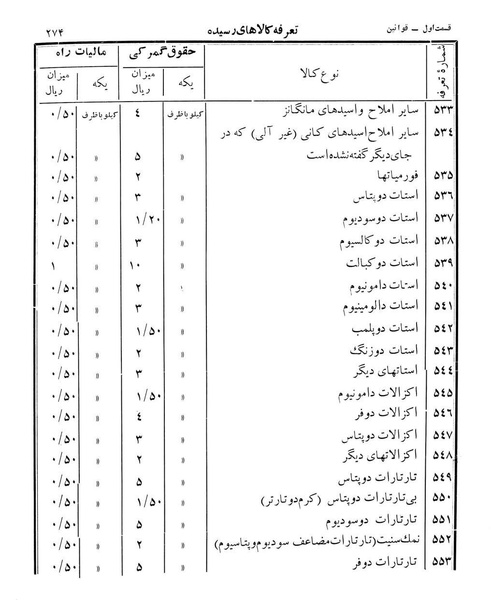 قسمت اول – قوانین تعرفه کالاهای رسیده ۲۷۴
شمارهٔ تعرفه نوع کالا حقوق گمرکی مالیات راه
یکه میزان ریال یکه میزان ریال
۵۳۳ سایر املاح واسیدهای مانگانز کیلو باظرف ۴ کیلو باظرف ۰/۵۰
۵۳۴ سایر املاح اسیدهای کانی (غیر آلی) که در
جای دیگر گفته نشده است » ۵ » ۰/۵۰
۵۳۵ فورمیاتها » ۲ » ۰/۵۰
۵۳۶ استات دوپتاس » ۳ » ۰/۵۰
۵۳۷ استات دوسودیوم » ۱/۲۰ » ۰/۵۰
۵۳۸ استات دوکالسیوم » ۳ » ۰/۵۰
۵۳۹ استات دوکبالت » ۱۰ » ۱
۵۴۰ استات دامونیوم » ۲ » ۰/۵۰
۵۴۱ استات دالومینیوم » ۳ » ۰/۵۰
۵۴۲ استات دوپلمب » ۱/۵۰ » ۰/۵۰
۵۴۳ استات دوزنگ » ۲ » ۰/۵۰
۵۴۴ استاتهای دیگر » ۳ » ۰/۵۰
۵۴۵ اکزالات دامونیوم » ۱/۵۰ » ۰/۵۰
۵۴۶ اکزالات دوفر » ۴ » ۰/۵۰
۵۴۷ اکزالات دوپتاس » ۳ » ۰/۵۰
۵۴۸ اکزالاتهای دیگر » ۲ » ۰/۵۰
۵۴۹ تارتارات دوپتاس » ۵ » ۰/۵۰
۵۵۰ بی تارتارات دوپتاس (کرم دوتارتر) » ۱/۵۰ » ۰/۵۰
۵۵۱ تارتارات دوسودیوم » ۵ » ۰/۵۰
۵۵۲ نمک سنیت (تارتارات مضاعف سودیوم و پتاسیوم) » ۲ » ۰/۵۰
۵۵۳ تارتارات دوفر » ۵ » ۰/۵۰